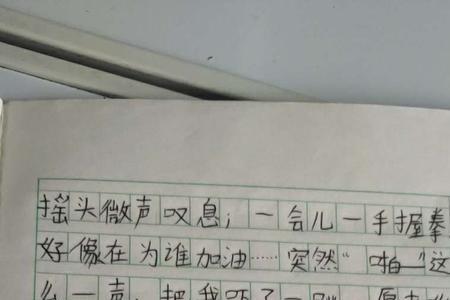 摇头微声叹息；一会儿一手握拳
好像在为谁加油……突然“啪”这
么一声，把我吓了一跳